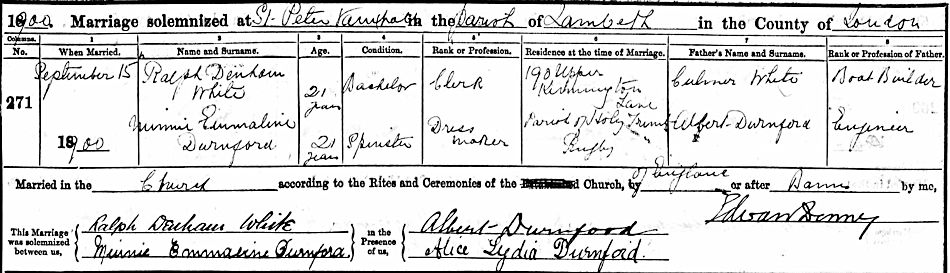 1900. Marriage solemnized at St. Peter Vauxhall in the Parish of Lambeth in the County of London
Columns. 1 2 3 4 5 6 7 8
No. When Married. Name and Surname. Age. Condition. Rank or Profession. Residence at the time of Marriage. Father's Name and Surname. Rank or Profession of Father.
271
September 15
1900
Ralph Denham
White
21
years
Bachelor
Clerk
190 Upper
Kennington
Lane
Culmer White
Boat Builder
Minnie Emmaline
Durnford
21
years
Spinster
Dress
maker
Parish of Holy Trinity
Rugby
Albert Durnford
Engineer
Married in the Church according to the Rites and Ceremonies of the Church, of England by or after Banns by me,
This Marriage was solemnized between us,
Ralph Denham White
Minnie Emmaline Durnford.
in the Presence of us,
Albert Durnford
Alice Lydia Durnford.